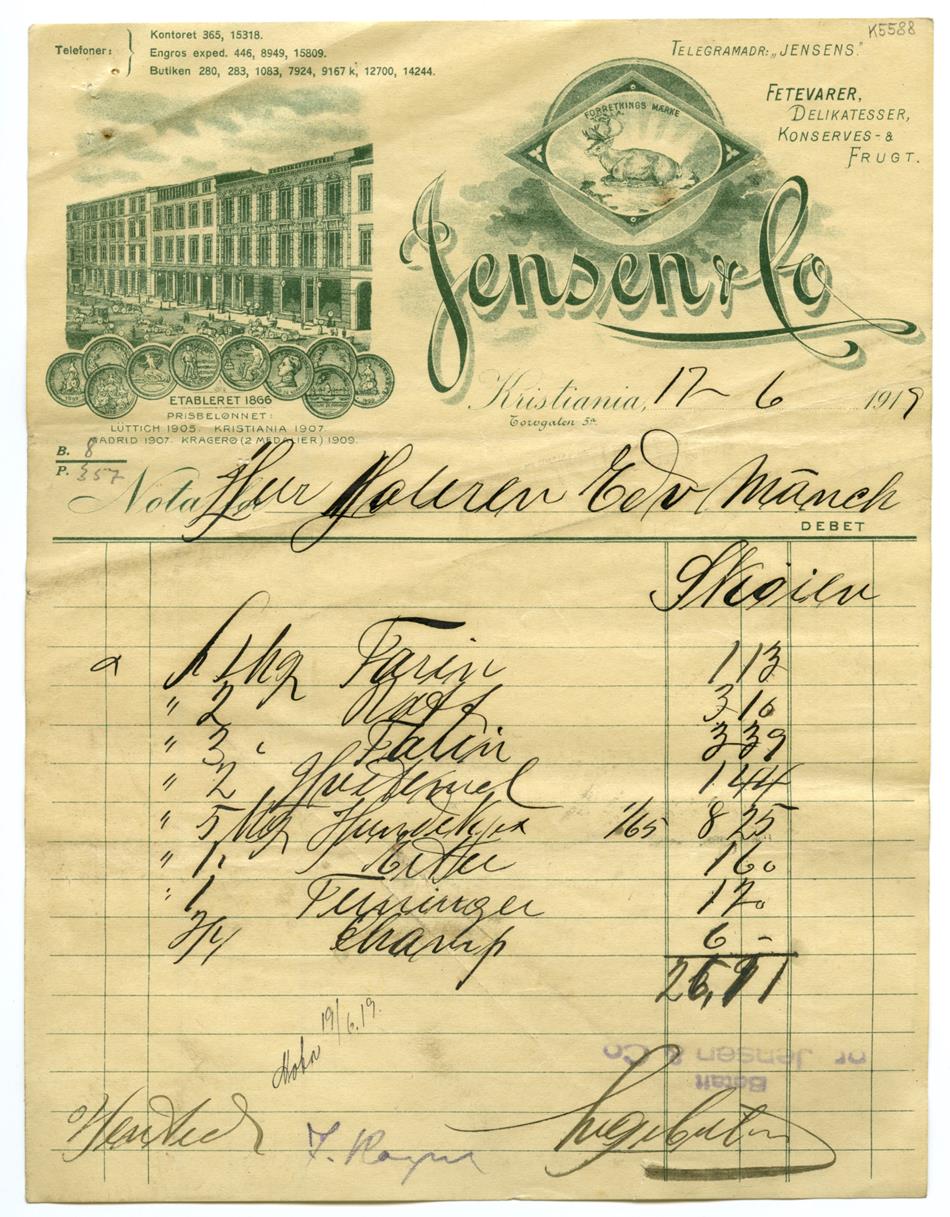 K5588
Telefoner:
Kontoret 365, 15318.
Engros exped. 446, 8949, 15809.
Butiken 280, 283, 1083, 7924, 9167 k, 12700, 14244.
TELEGRAMADR: „JENSENS."
FETEVARER,
DELIKATESSER,
KONSERVES- &
FRUGT.
FORRETNINGS MÆRKE
Jensen & Co
ETABLERET 1866
PRISBELØNNET:
LÜTTICH 1905. KRISTIANIA 1907.
MADRID 1907. KRAGERØ (2 MEDALIER) 1909.
Kristiania, 17-6 1919
Torvgaten 5a
B. 8
P. 357
Nota for Herr Maleren Edv Münch
DEBET
Skøien
1 kg Farin 1 13
" 2 3 10
" 3 " Farin 3 39
" 2 Hvedemel 1 44
" 5 kg Hundekjex 1/65 8 25
" 1 1 60
" 1 1 20
6 -
Betalt
pr Jensen & Co
19/6.19.